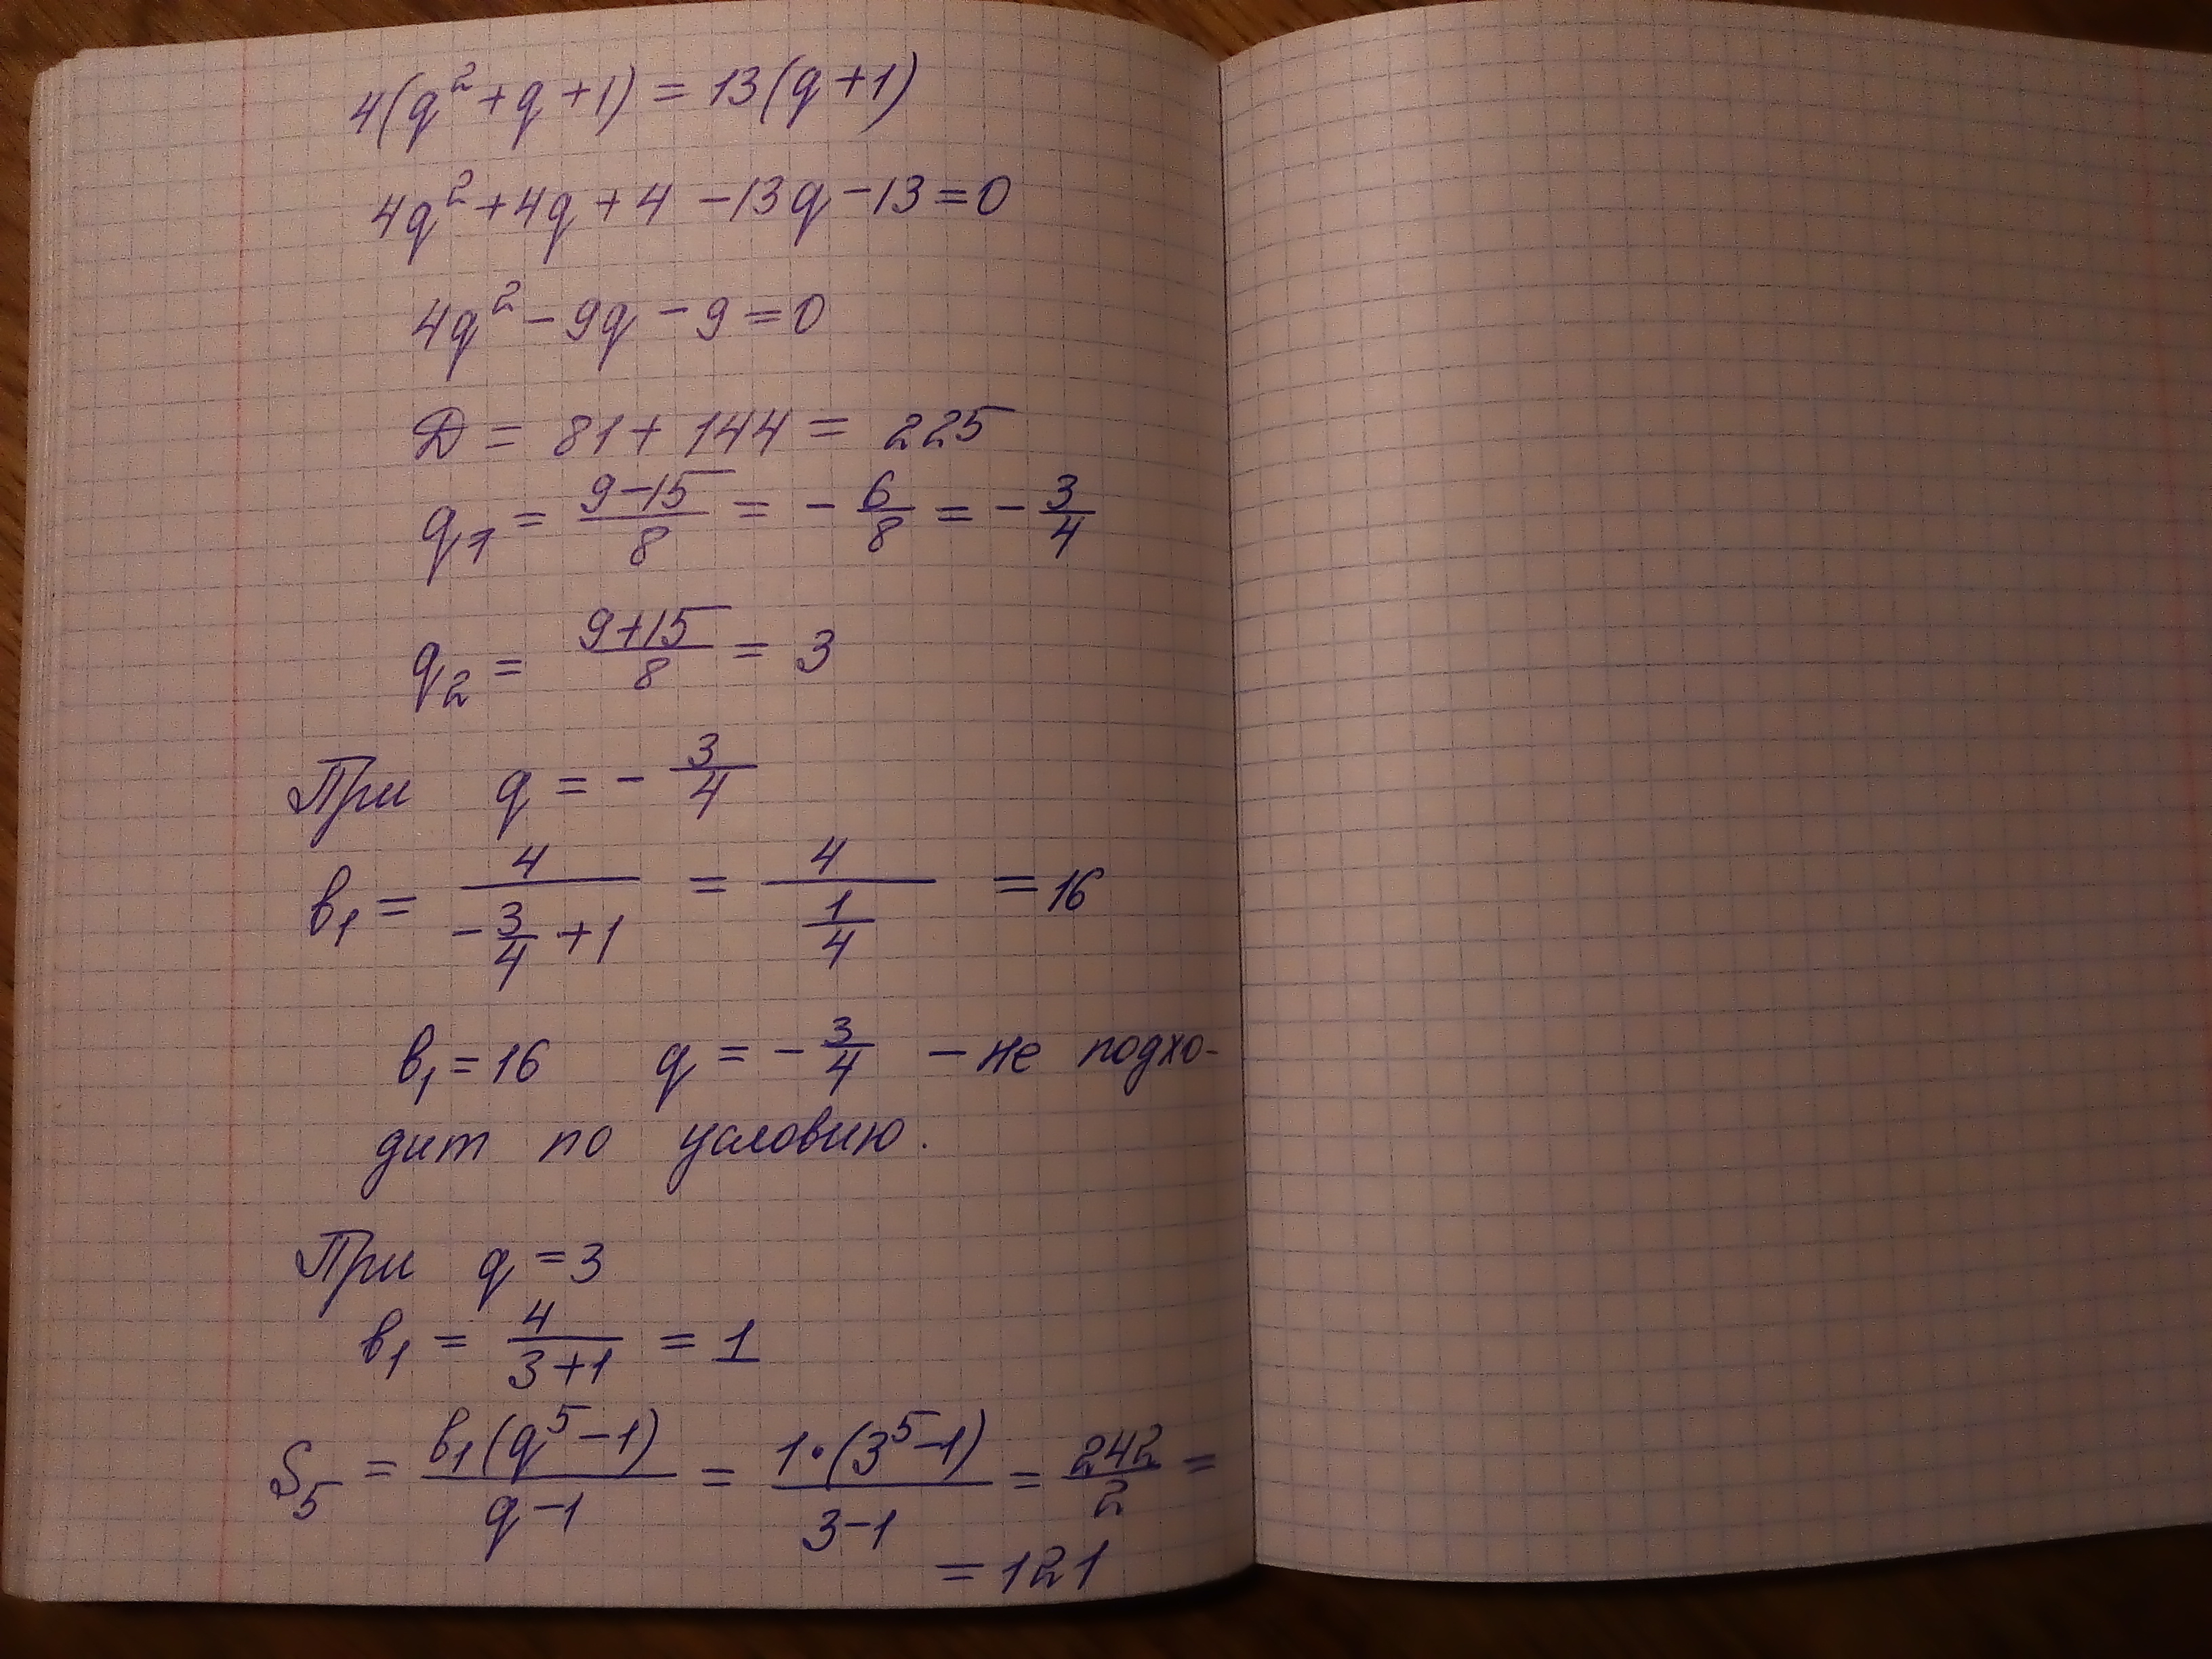 4(q² + q + 1) = 13(q + 1)
4q² + 4q + 4 - 13q - 13 = 0
4q² - 9q - 9 = 0
Д = 81 + 144 = 225
q₁ = (9-15)/8 = - 6/8 = - 3/4
q₂ = (9+15)/8 = 3
При q = - 3/4
в₁ = 4/(- 3/4 + 1) = 4/(1/4) = 16
в₁ = 16 q = - 3/4 - не подхо-
дит по условию.
При q = 3
в₁ = 4/(3+1) = 1
S₅ = в₁(q⁵-1)/(q-1) = 1·(3⁵-1)/(3-1) = 242/2 =
= 121